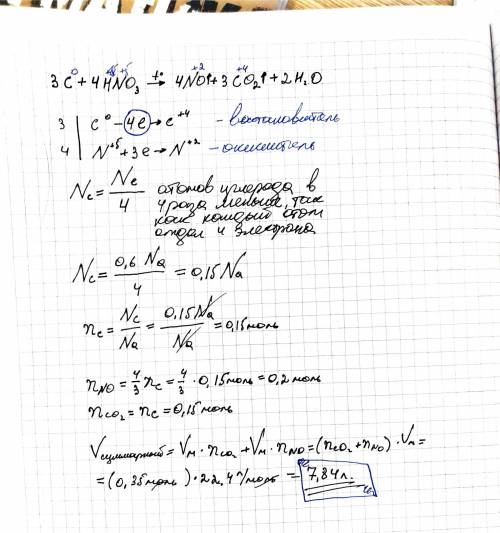 3C⁰ + 4HN⁺⁵O₃ t°→ 4N⁺²O↑ + 3C⁺⁴O₂↑ + 2H₂O
3 | C⁰ - 4e → C⁺⁴ - востановитель
4 | N⁺⁵ + 3e → N⁺² - окислитель
Nc = Ne / 4 атомов углерода в
4 раза меньше, так
как каждый атом
отдал 4 электрона
Nc = 0,6 Na / 4 = 0,15 Na
nc = Nc / Na = 0,15 Na / Na = 0,15 моль
nNO = 4/3 nc = 4/3 · 0,15 моль = 0,2 моль
nCO₂ = nc = 0,15 моль
Vсуммарный = Vм · nCO₂ + Vм · nNO = (nCO₂ + nNO) · Vм =
= (0,35 моль) · 22,4 л/моль = 7,84 л.